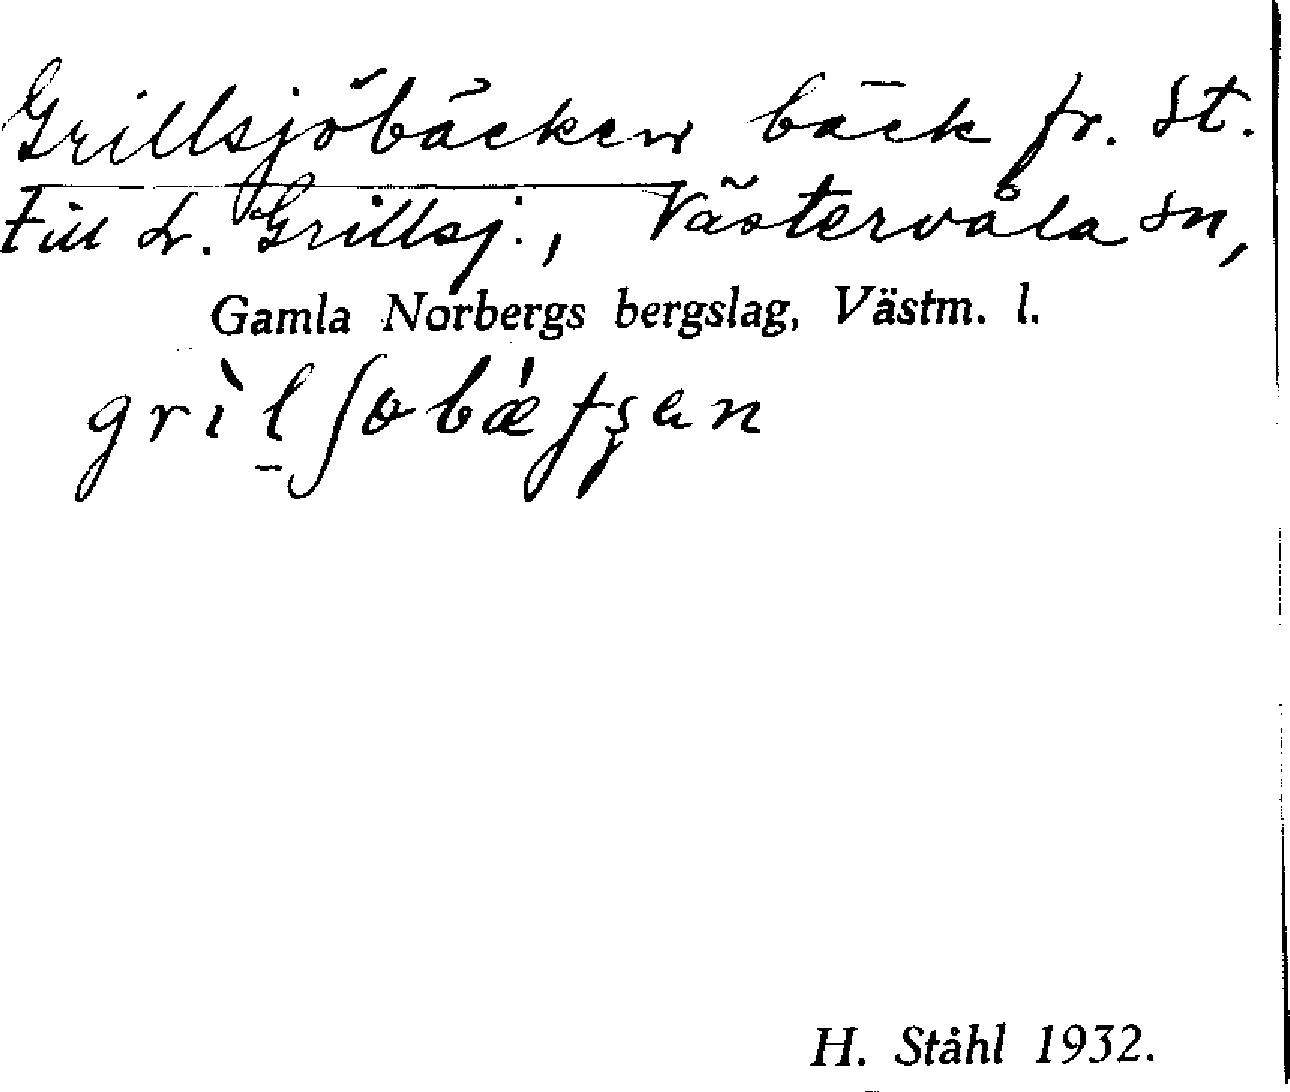 Grillsjöbäcken bäck fr. St.
till L. Grillsj., Västervåla sn,
Gamla Norbergs bergslag, Västm. l.
grìlʃobǽtʂen
H. Ståhl 1932.